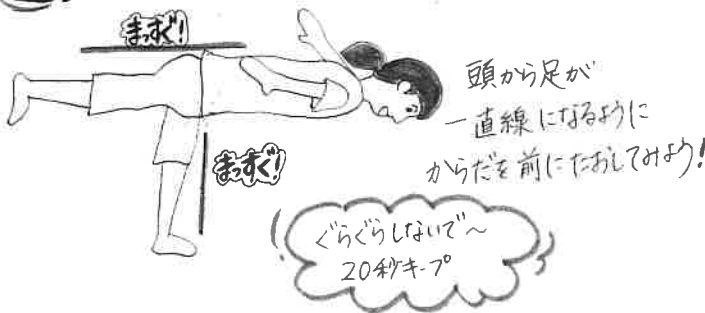 まっすぐ!
頭から足が
一直線になるように
からだを前にたおしてみよう!
まっすぐ!
ぐらぐらしないで〜
20秒キープ